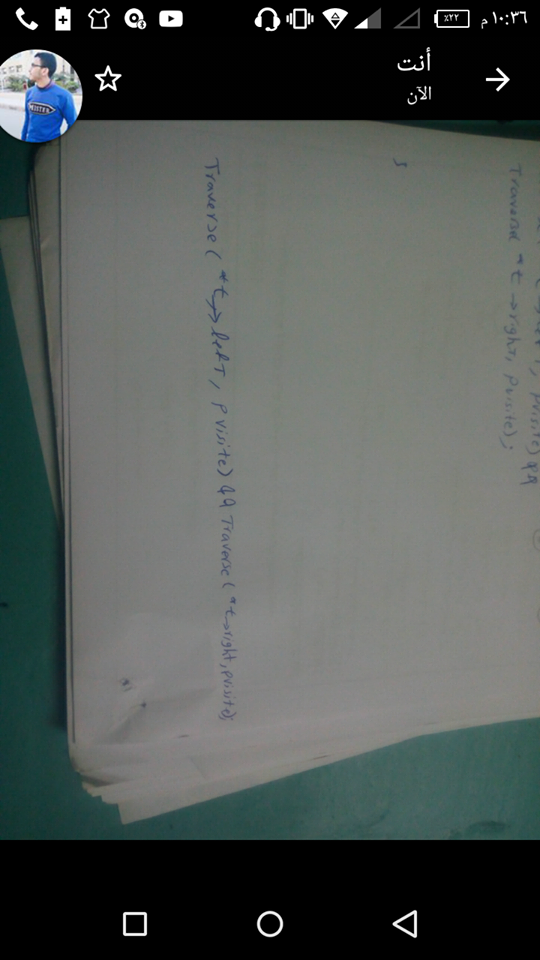 ١٠:٣٦ م
٪٢٢
أنت
الآن
MEISTER
pvisite) &&
Traverse( *t→right, pvisite);
s
Traverse( *t→left, pvisite) && Traverse( *t→right, pvisite);